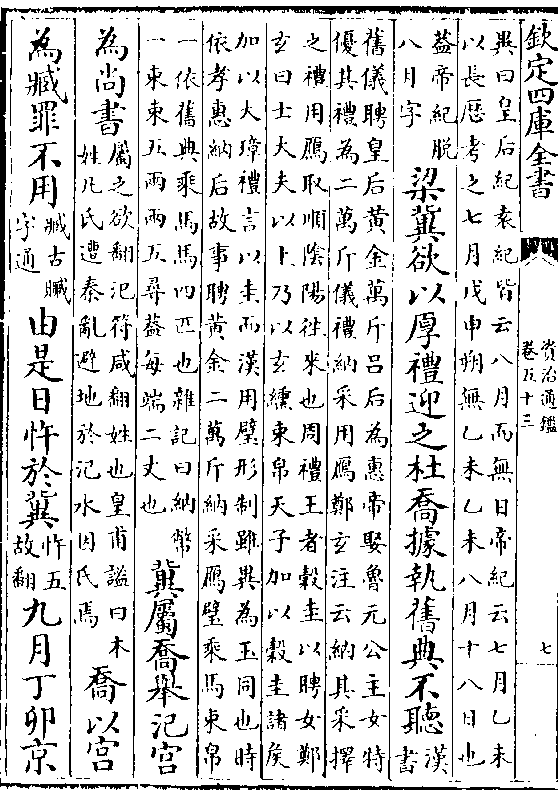 欽定四庫全書
資治通鑑
卷五十三
七
異曰皇后紀袁紀皆云八月而無日帝紀云七月乙未
以長歷考之七月戊申朔無乙未乙未八月十八日也
葢帝紀脱
八月字
梁冀欲以厚禮迎之杜喬據執舊典不聽
漢書
舊儀聘皇后黄金萬斤吕后為惠帝娶魯元公主女特
優其禮為二萬斤儀禮納采用鴈鄭玄注云納其采擇
之禮用鴈取順陰陽往來也周禮王者糓圭以聘女鄭
玄曰士大夫以上乃以玄纁束帛天子加以穀圭諸侯
加以大璋禮言以圭而漢用璧形制雖異為玉同也時
依孝惠納后故事聘黄金二萬斤納采鴈璧乘馬束帛
一依舊典乘馬馬四匹也雜記曰納幣
一束束五兩兩五尋葢每端二丈也
冀屬喬舉汜宫
為尚書
屬之欲翻汜符咸翻姓也皇甫謐曰本
姓凡氏遭秦亂避地於汜水因氏焉
喬以宫
為臧罪不用
臧古贓
字通
由是日忤於冀
忤五
故翻
九月丁卯京